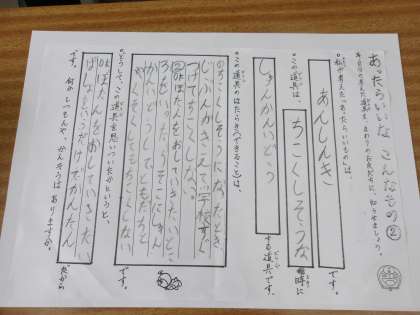 あったらいいな こんなもの②
自分の考えた道具を、まわりのお友だちに、知らせましょう。
○私が考えた「あったらいいもの」は、
あんしんき
です。
○この道具は、
ちこくしそうな
時に
しゅんかんいどう
する道具です。
○この道具のはたらき(できること)は、
ちこくしそうに なったとき、
じぶんが
つけてちこくしなっ。
人をおして いきたいとこ
そこにしゅん
かんいどうして、ともだちと
やくそくしてもちこくしない
です。
○どうして、この道具を思いついたかというと、
ぼたんをおしていきたい
ばしょをいうだけでかんたん
だから
です。何か しつもんや、かんそうは ありますか。